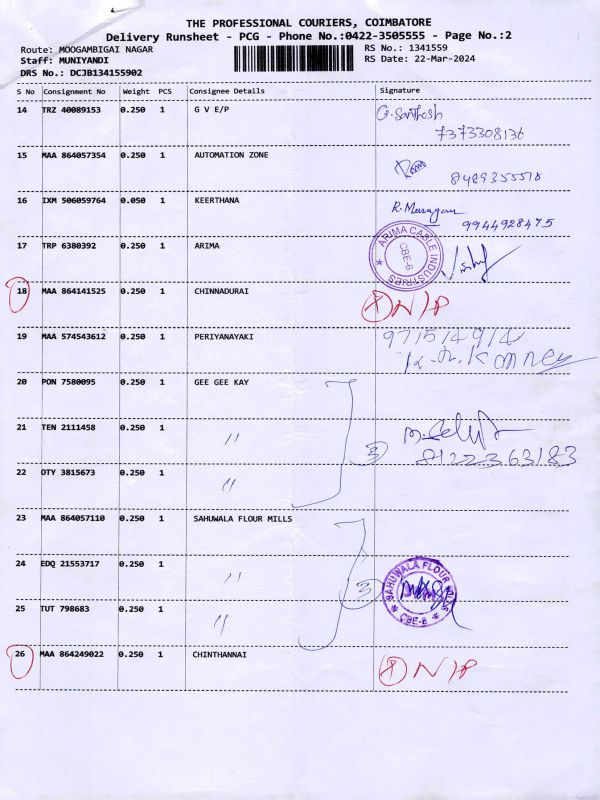 THE PROFESSIONAL COURIERS, COIMBATORE
Delivery Runsheet - PCG - Phone No.:0422-3505555 - Page No.:2
Route: MOOGAMBIGAI NAGAR RS No.: 1341559
Staff: MUNIYANDI RS Date: 22-Mar-2024
DRS No.: DCJB134155902
S No Consignment No Weight PCS Consignee Details Signature
14 TRZ 40089153 0.250 1 G V E/P G. Santhosh
7373308136
15 MAA 864057354 0.250 1 AUTOMATION ZONE
8489355518
16 IXM 506059764 0.050 1 KEERTHANA R. Murugan
9944928475
17 TRP 6380392 0.250 1 ARIMA ARIMA CABLE INDUSTRIES CBE-6
18 MAA 864141525 0.250 1 CHINNADURAI N/P
19 MAA 574543612 0.250 1 PERIYANAYAKI
20 PON 7580095 0.250 1 GEE GEE KAY
21 TEN 2111458 0.250 1 〃
3 8122363183
22 OTY 3815673 0.250 1 〃
23 MAA 864057110 0.250 1 SAHUWALA FLOUR MILLS
24 EDQ 21553717 0.250 1 〃 3 SAHUWALA FLOUR MILLS CBE-6
25 TUT 798683 0.250 1 〃
26 MAA 864249022 0.250 1 CHINTHANNAI N/P